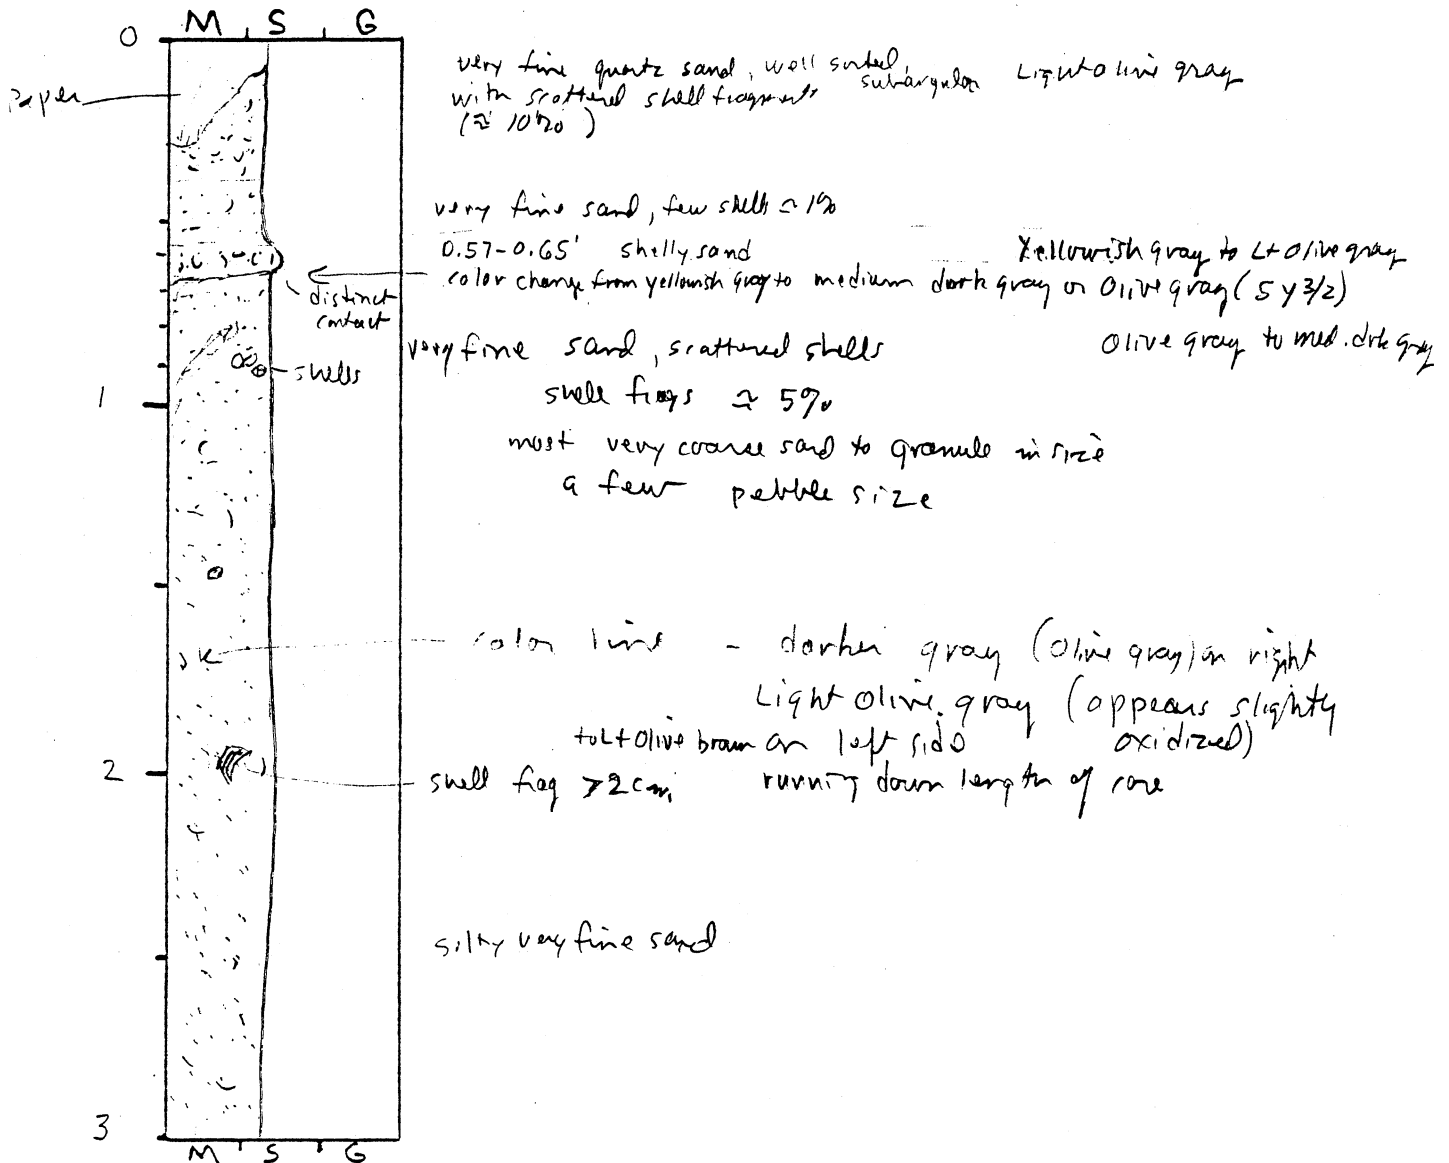 M S G
0
Paper
very fine quartz sand, well sorted, subangular Light Olive gray
with scattered shell fragments
(≈ 10%)
very fine sand, few shells ≃ 1%
0.57-0.65' shelly sand Yellowish gray to Lt Olive gray
color change from yellowish gray to medium dark gray or Olive gray (5 Y 3/2)
distinct
contact
very fine sand, scattered shells Olive gray to med. drk gray
shells
shell frags ≃ 5%
1
most very coarse sand to granule in size
a few pebble size
color line - darker gray (Olive gray) on right
Light Olive gray (appears slightly
to Lt Olive brown on left side oxidized)
2
shell frag >2cm. running down length of core
silty very fine sand
3
M S G